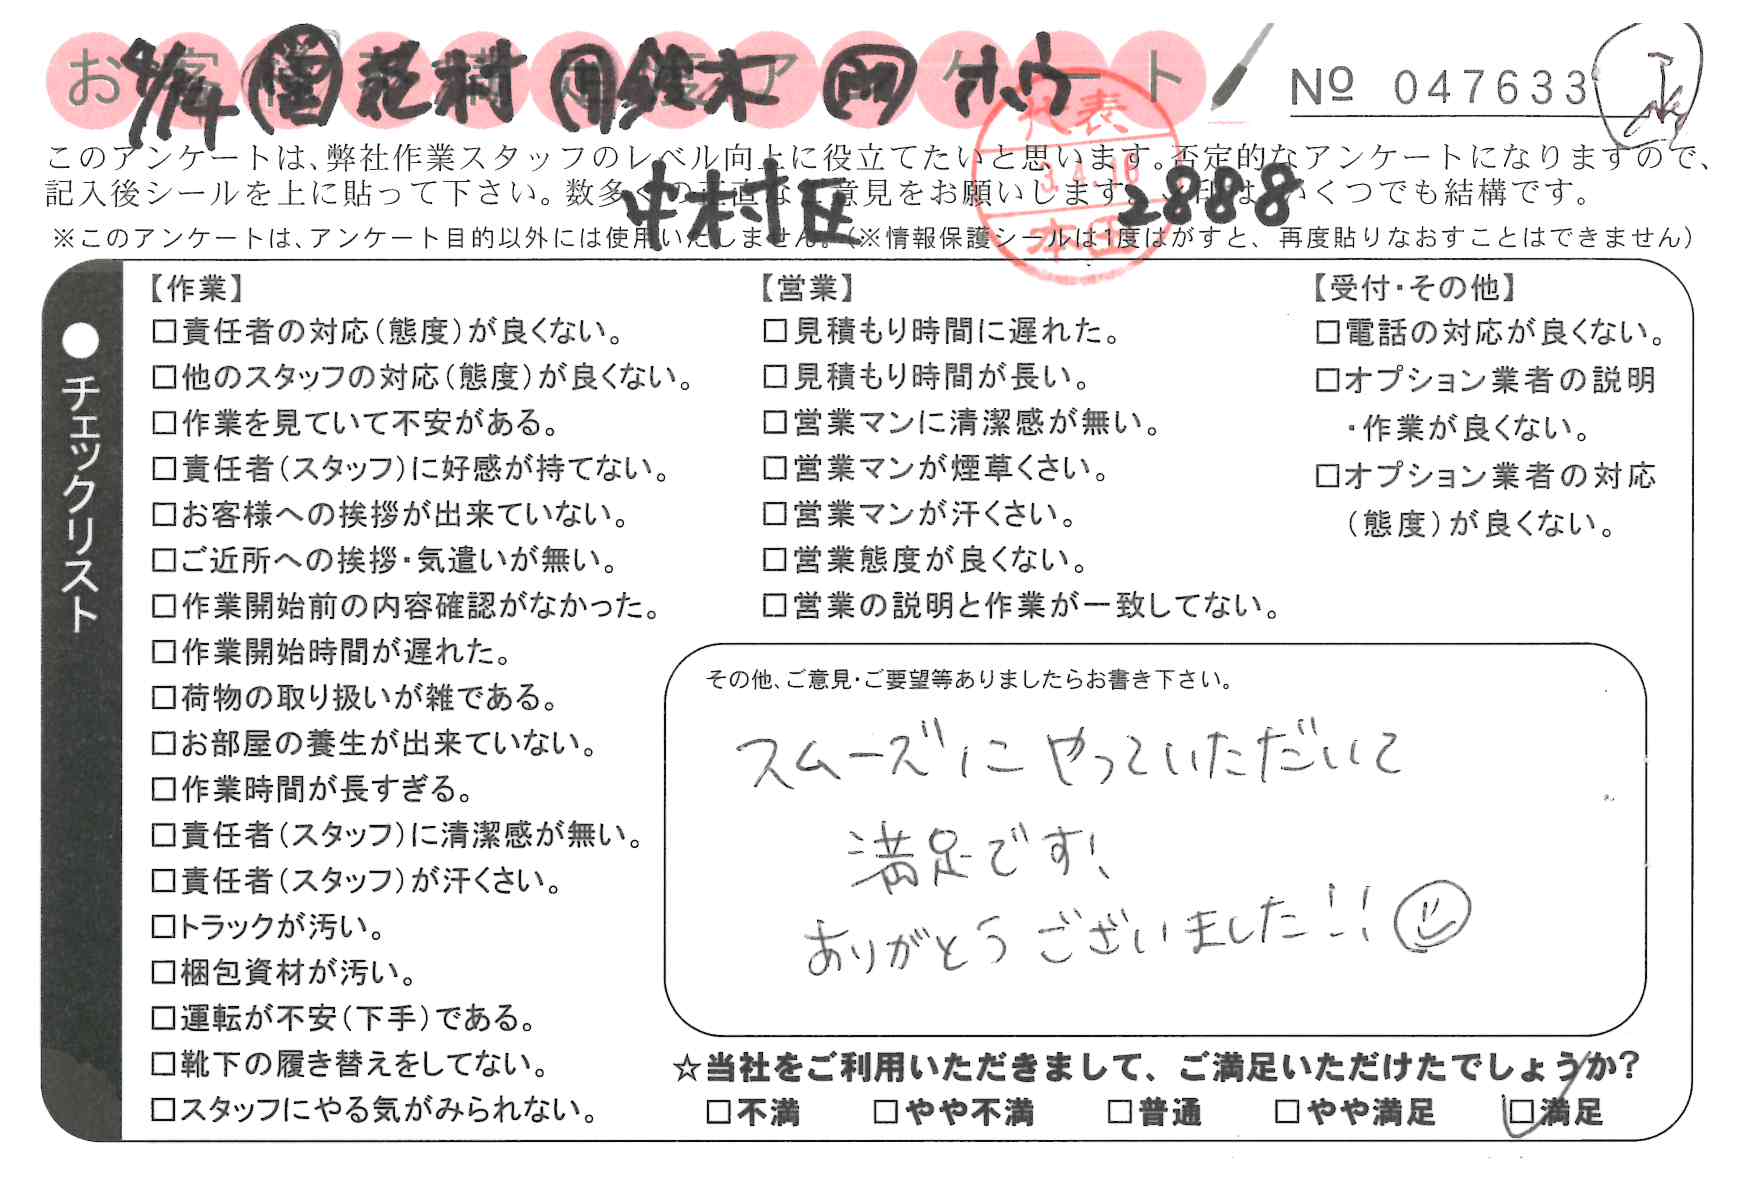 お客様満足度アンケート
4/14 営 花村 月 鈴木 ホウ
№ 047633
このアンケートは、弊社作業スタッフのレベル向上に役立てたいと思います。否定的なアンケートになりますので、
記入後シールを上に貼って下さい。数多くの正直なご意見をお願いします。✓印は、いくつでも結構です。
中村区 2888
代表
3.4.16
本田
※このアンケートは、アンケート目的以外には使用いたしません。(※情報保護シールは1度はがすと、再度貼りなおすことはできません)
●チェックリスト
【作業】
□責任者の対応(態度)が良くない。
□他のスタッフの対応(態度)が良くない。
□作業を見ていて不安がある。
□責任者(スタッフ)に好感が持てない。
□お客様への挨拶が出来ていない。
□ご近所への挨拶・気遣いが無い。
□作業開始前の内容確認がなかった。
□作業開始時間が遅れた。
□荷物の取り扱いが雑である。
□お部屋の養生が出来ていない。
□作業時間が長すぎる。
□責任者(スタッフ)に清潔感が無い。
□責任者(スタッフ)が汗くさい。
□トラックが汚い。
□梱包資材が汚い。
□運転が不安(下手)である。
□靴下の履き替えをしてない。
□スタッフにやる気がみられない。
【営業】
□見積もり時間に遅れた。
□見積もり時間が長い。
□営業マンに清潔感が無い。
□営業マンが煙草くさい。
□営業マンが汗くさい。
□営業態度が良くない。
□営業の説明と作業が一致してない。
【受付・その他】
□電話の対応が良くない。
□オプション業者の説明
・作業が良くない。
□オプション業者の対応
(態度)が良くない。
その他、ご意見・ご要望等ありましたらお書き下さい。
スムーズにやっていただいて
満足です!
ありがとうございました!!
☆当社をご利用いただきまして、ご満足いただけたでしょうか?
□不満 □やや不満 □普通 □やや満足 □満足